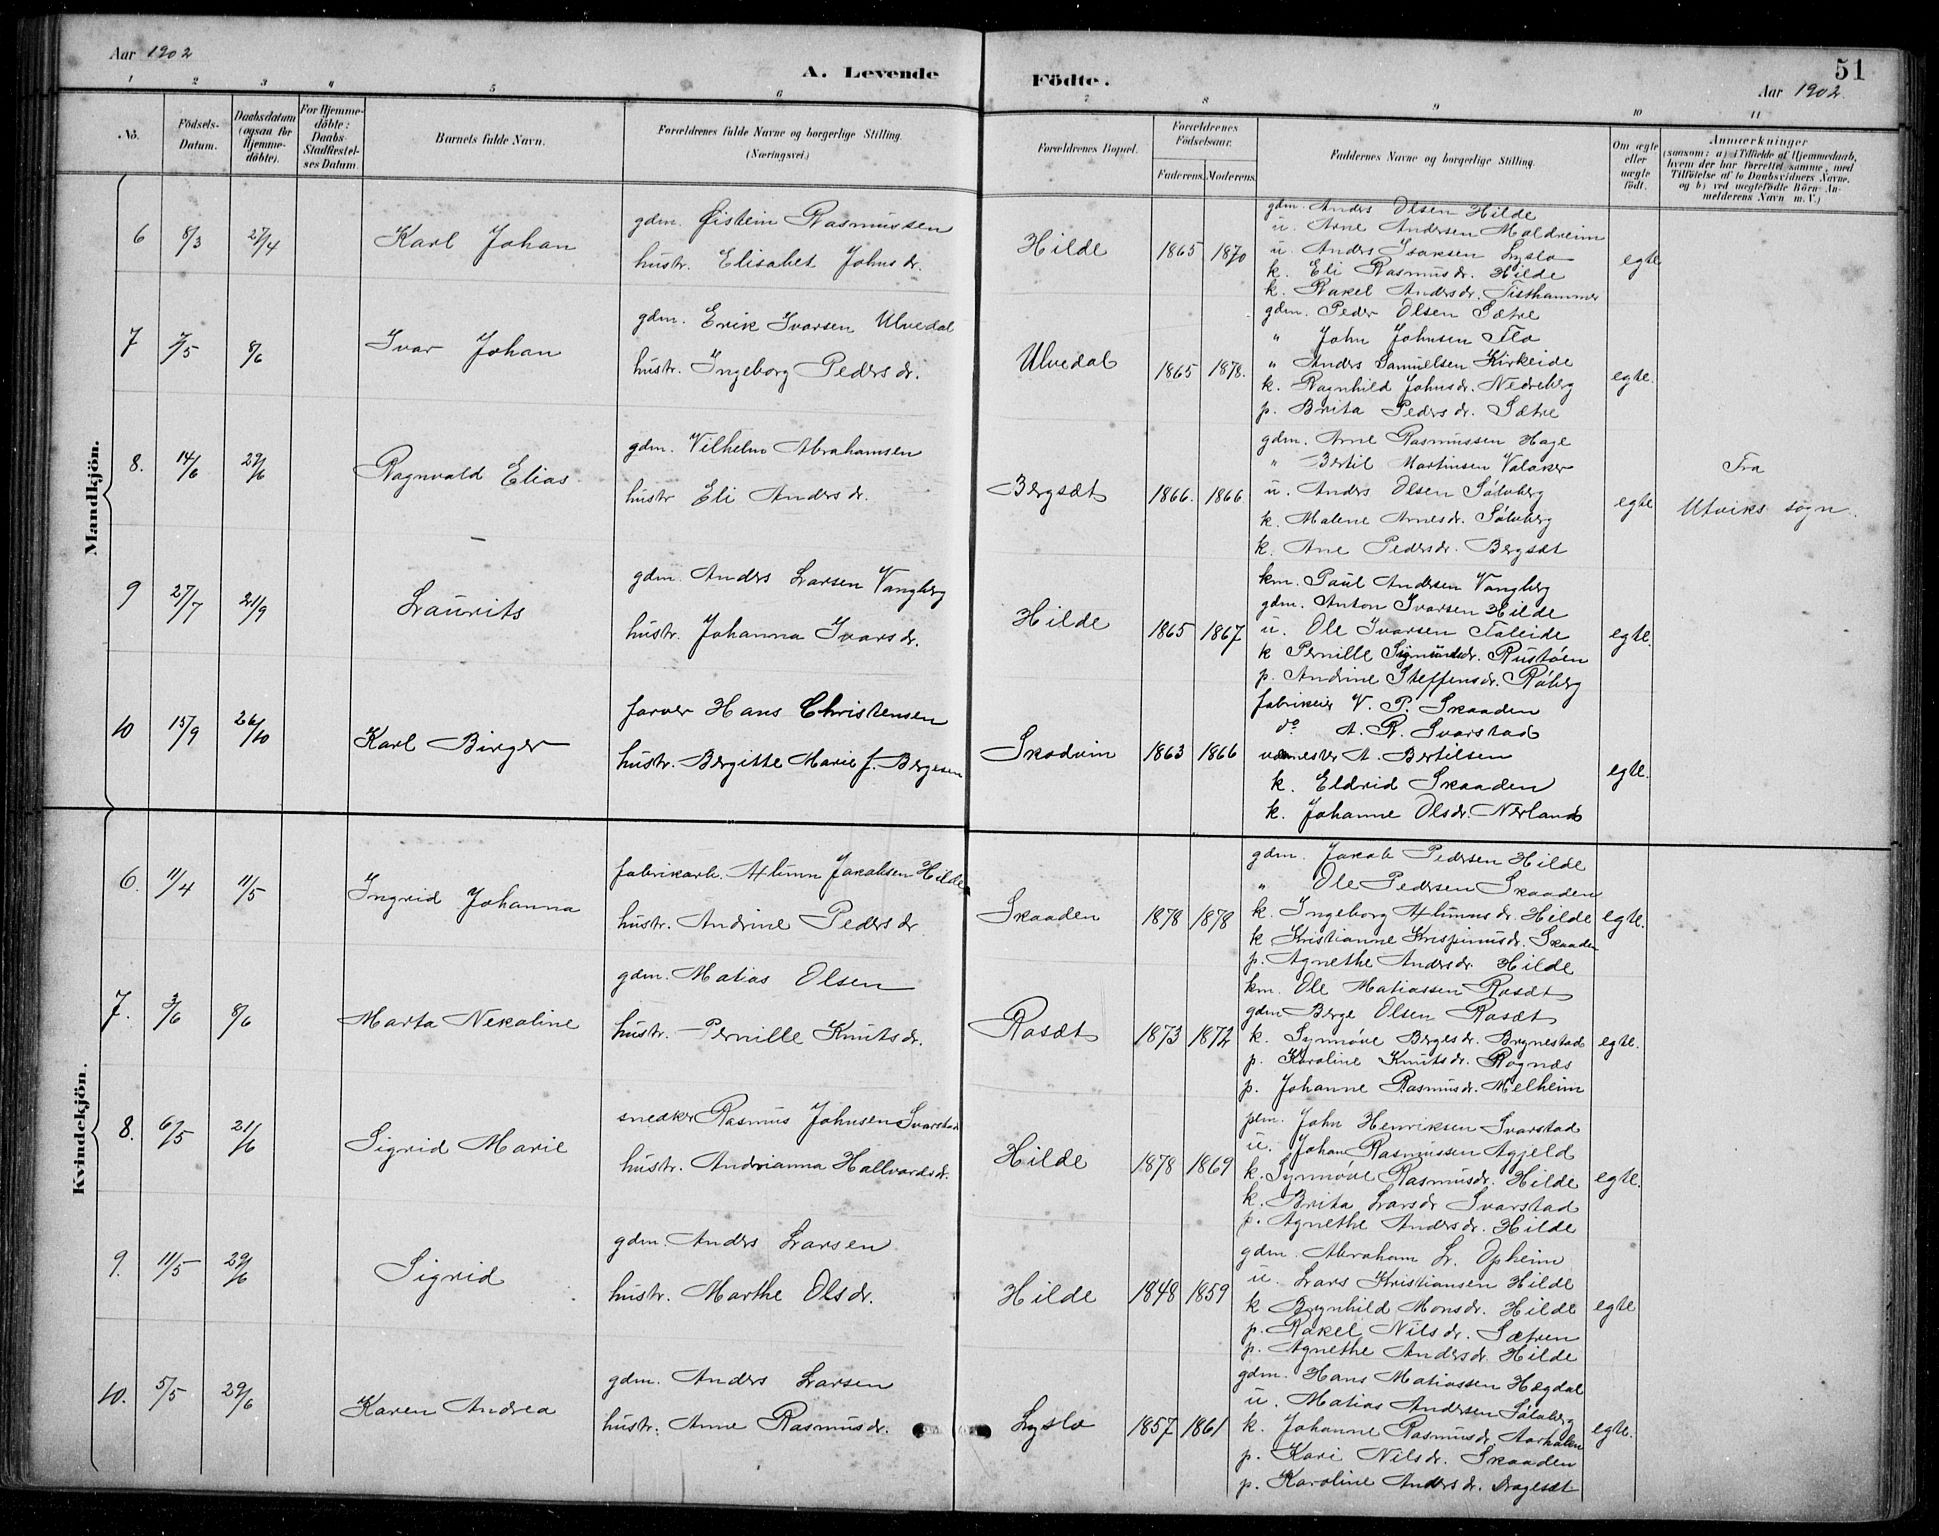 Aar 1902
A. Levende Födte.
51
Aar 1902.
1 2 3 4 5 6 7 8 9 10 11
No.
Födsels-Datum.
Daabsdatum (ogsaa for Hjemme-döbte).
For Hjemme-döbte: Daabs-Stadfæstel-ses Datum.
Barnets fulde Navn.
Forældrenes fulde Navne og borgerlige Stilling. (Næringsvei.)
Forældrenes Bopæl.
Forældrenes Födselsaar.
Faderens. Moderens.
Faddernes Navne og borgerlige Stilling.
Om ægte eller uægte födt.
Anmærkninger (saasom: a) i Tilfælde af Hjemmedaab, hvem der har forrettet samme, med Tilföielse af to Daabsvidners Navne, og b) ved uægtefödte Börn Anmelderens Navn m. V.)
Mandkjön.
6 8/3 27/4 Karl Johan
gdm. Øistein Rasmussen
hustr. Elisabet Johnsdr.
Hilde 1865 1870
gdm. Anders Olsen Hilde
u. Arne Andersen Maldreim
u. Anders Isaksen Lyslo
k. Eli Rasmusdr. Hilde
k. Rakel Andersdr. Tisthammer
egte
7 7/5 8/6 Ivar Johan
gdm. Erik Ivarsen Ulvedal
hustr. Ingeborg Pedersdr.
Ulvedal 1865 1878.
gdm. Peder Olsen Sætre
" John Johnsen Flo
" Anders Samuelsen Kirkeide
k. Ragnhild Johnsdr. Nedreberg
p. Brita Pedersdr. Sætre
egte.
8. 14/6 29/6 Ragnvald Elias
gdm. Vilhelm Abrahamsen
hustr Eli Andersdr.
Bergsæt 1866. 1866
gdm. Arne Rasmussen Hage
" Bertil Martinsen Valaker
u. Anders Olsen Sølvberg
k. Malene Arnesdr. Sølvberg
k. Ane Pedersdr. Bergsæt
egte
Fra
Utviks sogn.
9 27/7 21/9 Laurits
gdm. Anders Larsen Vangberg
hustr. Johanna Ivarsdr.
Hilde 1865 1867
km. Paul Andersen Vangberg
gdm. Anton Ivarsen Hilde
u. Ole Ivarsen Faleide
k Pernille Sigmundsdr. Rustøen
p. Andrine Steffensdr. Røberg
egte.
10 15/9 26/10 Karl Birger
farver Hans Christensen
hustr. Bergitte Marie f. Bergesen
Skodvin 1863 1866
fabrikeier V. P. Skaaden
do A. R. Svarstad
A. Bertilsen
k. Eldrid Skaaden
k. Johanne Olsdr. Nerland
egte.
Kvindekjön.
6. 11/4 11/5 Ingrid Johanna
fabrikarb. Jakobsen Hilde
hustr. Andrine Pedersdr
Skaaden 1878 1878
gdm. Jakob Pedersen Hilde
" Ole Pedersen Skaaden
k. Ingeborg Hilde
k Kristianne Krispinusdr. Skaaden
p. Agnethe Andersdr. Hilde
egte.
7. 3/6 8/6 Marta Nekoline
gdm. Matias Olsen
hustr. Pernille Knutsdr.
Rosæt 1873 1872
km. Ole Matiassen Rosæt
gdm Berge Olsen Rosæt
k. Synnøve Bergesdr. Brynestad
p. Karoline Knutsdr. Rognæs
p. Johanne Rasmusdr. Melheim
egte.
8. 6/5 21/6 Sigrid Marie
snedker Rasmus Johnsen Svarstad
hustr. Andrianna Hallvardsdr.
Hilde 1878 1869
pm. John Henriksen Svarstad
u. Johan Rasmussen Agjeld
k. Synnøve Rasmusdr. Hilde
k. Brita Larsdr Svarstad
p. Agnethe Andersdr. Hilde
egte.
9. 11/5 29/6 Sigrid
gdm. Anders Larsen
hustr. Marthe Olsdr.
Hilde 1848 1859
gdm. Abraham L. Opheim
u. Lars Kristiansen Hilde
k Brynhild Monsdr. Hilde
p. Rakel Nilsdr. Sætren
p. Agnethe Andersdr. Hilde
egte
10. 5/5 29/6 Karen Andrea
gdm. Anders Larsen
hustr. Anne Rasmusdr.
Lyslo 1857 1861
gdm. Hans Matiassen Hægdal
u. Matias Andersen Sølvberg
k. Johanne Rasmusdr. Aarholen
p. Kari Nilsdr. Skaaden
p. Karoline Andersdr. Dragesæt
egte.